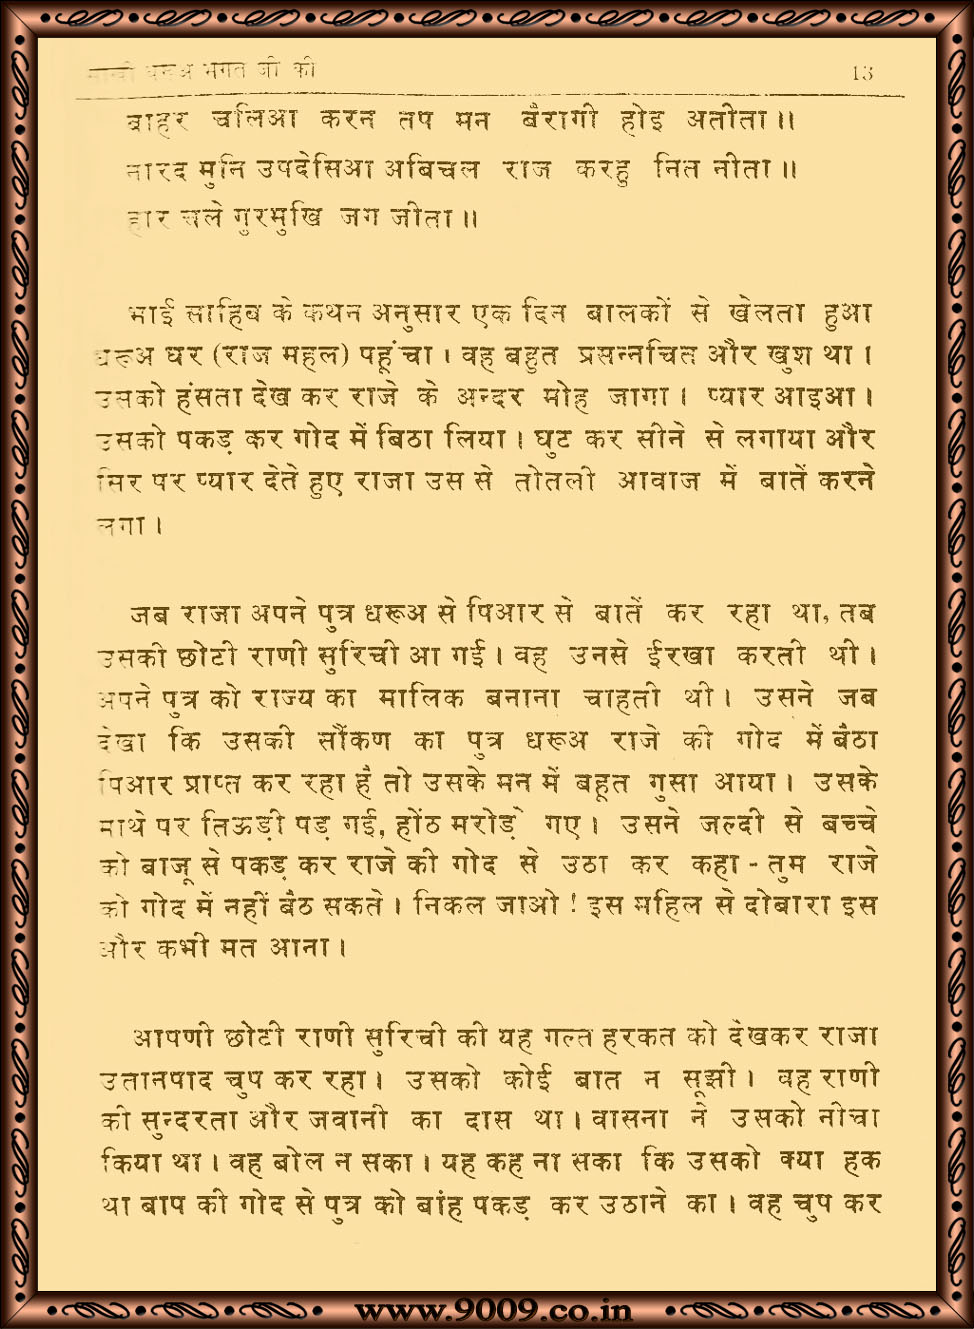 साखी धरूअ भगत जी की 13
बाहर चलिआ करन तप मन बैरागी होइ अतीता॥
नारद मुनि उपदेसिआ अबिचल राज करहु नित नीता॥
हार चले गुरमुखि जग जीता॥
भाई साहिब के कथन अनुसार एक दिन बालकों से खेलता हुआ
धरूअ घर (राज महल) पहूंचा। वह बहुत प्रसन्नचित और खुश था।
उसको हंसता देख कर राजे के अन्दर मोह जागा। प्यार आइआ।
उसको पकड़ कर गोद में बिठा लिया। घुट कर सीने से लगाया और
सिर पर प्यार देते हुए राजा उस से तोतली आवाज में बातें करने
लगा।
जब राजा अपने पुत्र धरूअ से पिआर से बातें कर रहा था, तब
उसकी छोटी राणी सुरिची आ गई। वह उनसे ईरखा करती थी।
अपने पुत्र को राज्य का मालिक बनाना चाहती थी। उसने जब
देखा कि उसकी सौंकण का पुत्र धरूअ राजे की गोद में बैठा
पिआर प्राप्त कर रहा है तो उसके मन में बहूत गुसा आया। उसके
माथे पर तिऊड़ी पड़ गई, होंठ मरोड़े गए। उसने जल्दी से बच्चे
को बाजू से पकड़ कर राजे की गोद से उठा कर कहा - तुम राजे
की गोद में नहीं बैठ सकते। निकल जाओ ! इस महिल से दोबारा इस
और कभी मत आना।
आपणी छोटी राणी सुरिची की यह गल्त हरकत को देखकर राजा
उतानपाद चुप कर रहा। उसको कोई बात न सूझी। वह राणी
की सुन्दरता और जवानी का दास था। वासना ने उसको नीचा
किया था। वह बोल न सका। यह कह ना सका कि उसको क्या हक
था बाप की गोद से पुत्र को बांह पकड़ कर उठाने का। वह चुप कर
www.9009.co.in